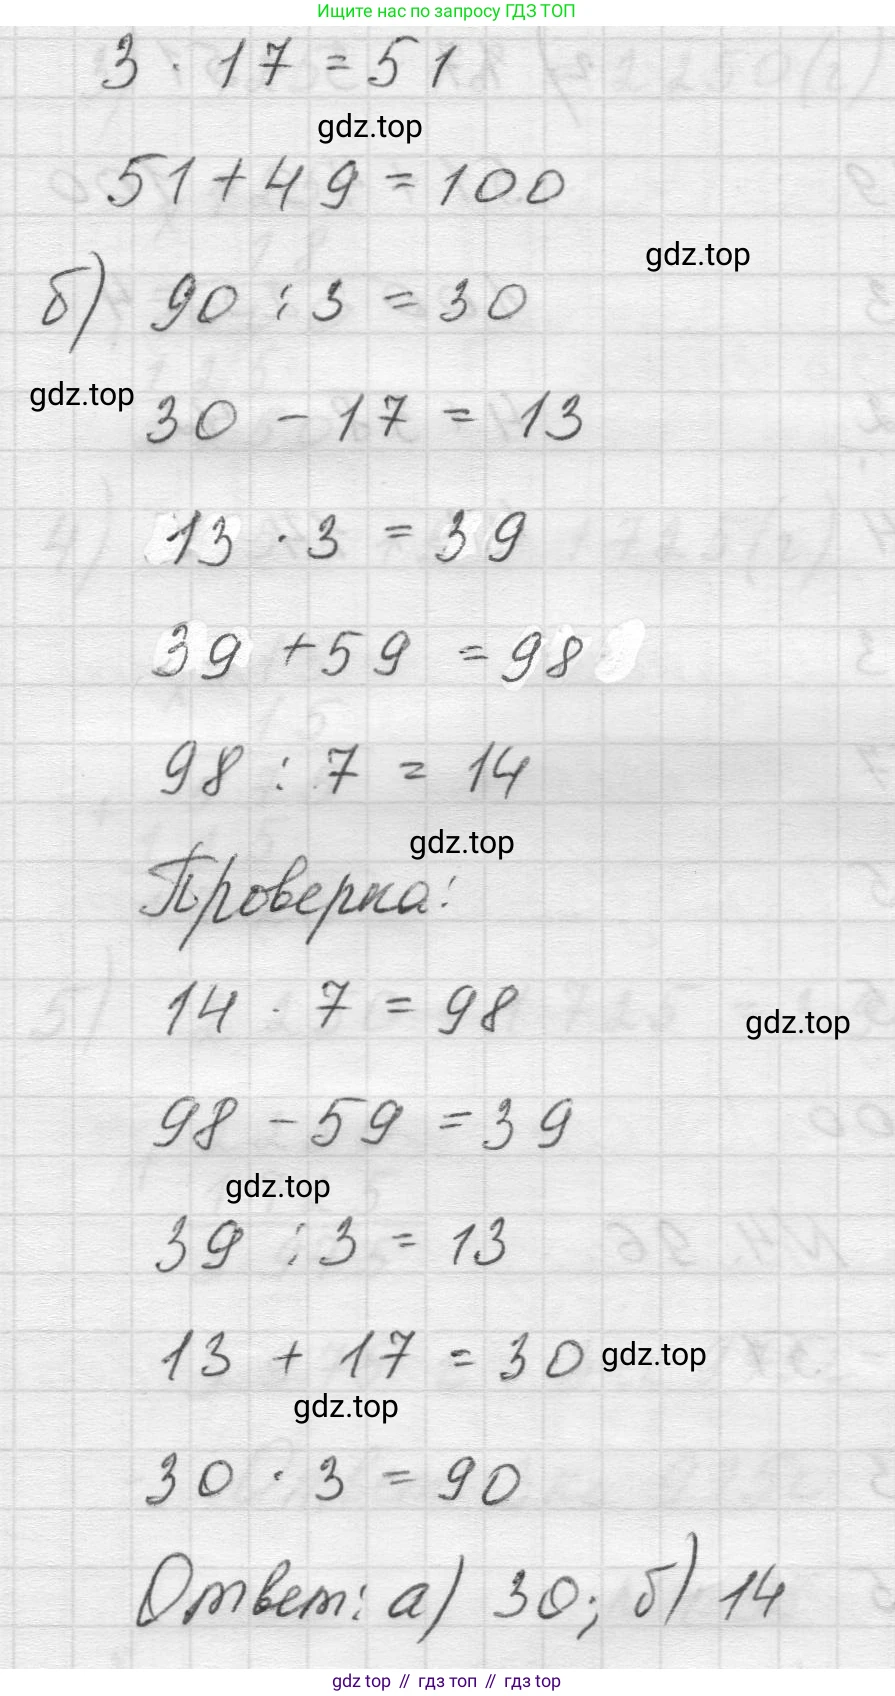 Ищите нас по запросу ГДЗ ТОП
3 · 17 = 51
gdz.top
51 + 49 = 100
gdz.top
б) 90 : 3 = 30
gdz.top
30 - 17 = 13
13 · 3 = 39
39 + 59 = 98
98 : 7 = 14
gdz.top
Проверка:
14 · 7 = 98
gdz.top
98 - 59 = 39
gdz.top
39 : 3 = 13
13 + 17 = 30
gdz.top
gdz.top
30 · 3 = 90
Ответ: а) 30; б) 14
gdz top // гдз топ // гдз top